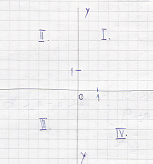 y
II. I.
1
0 1
III. IV.
y